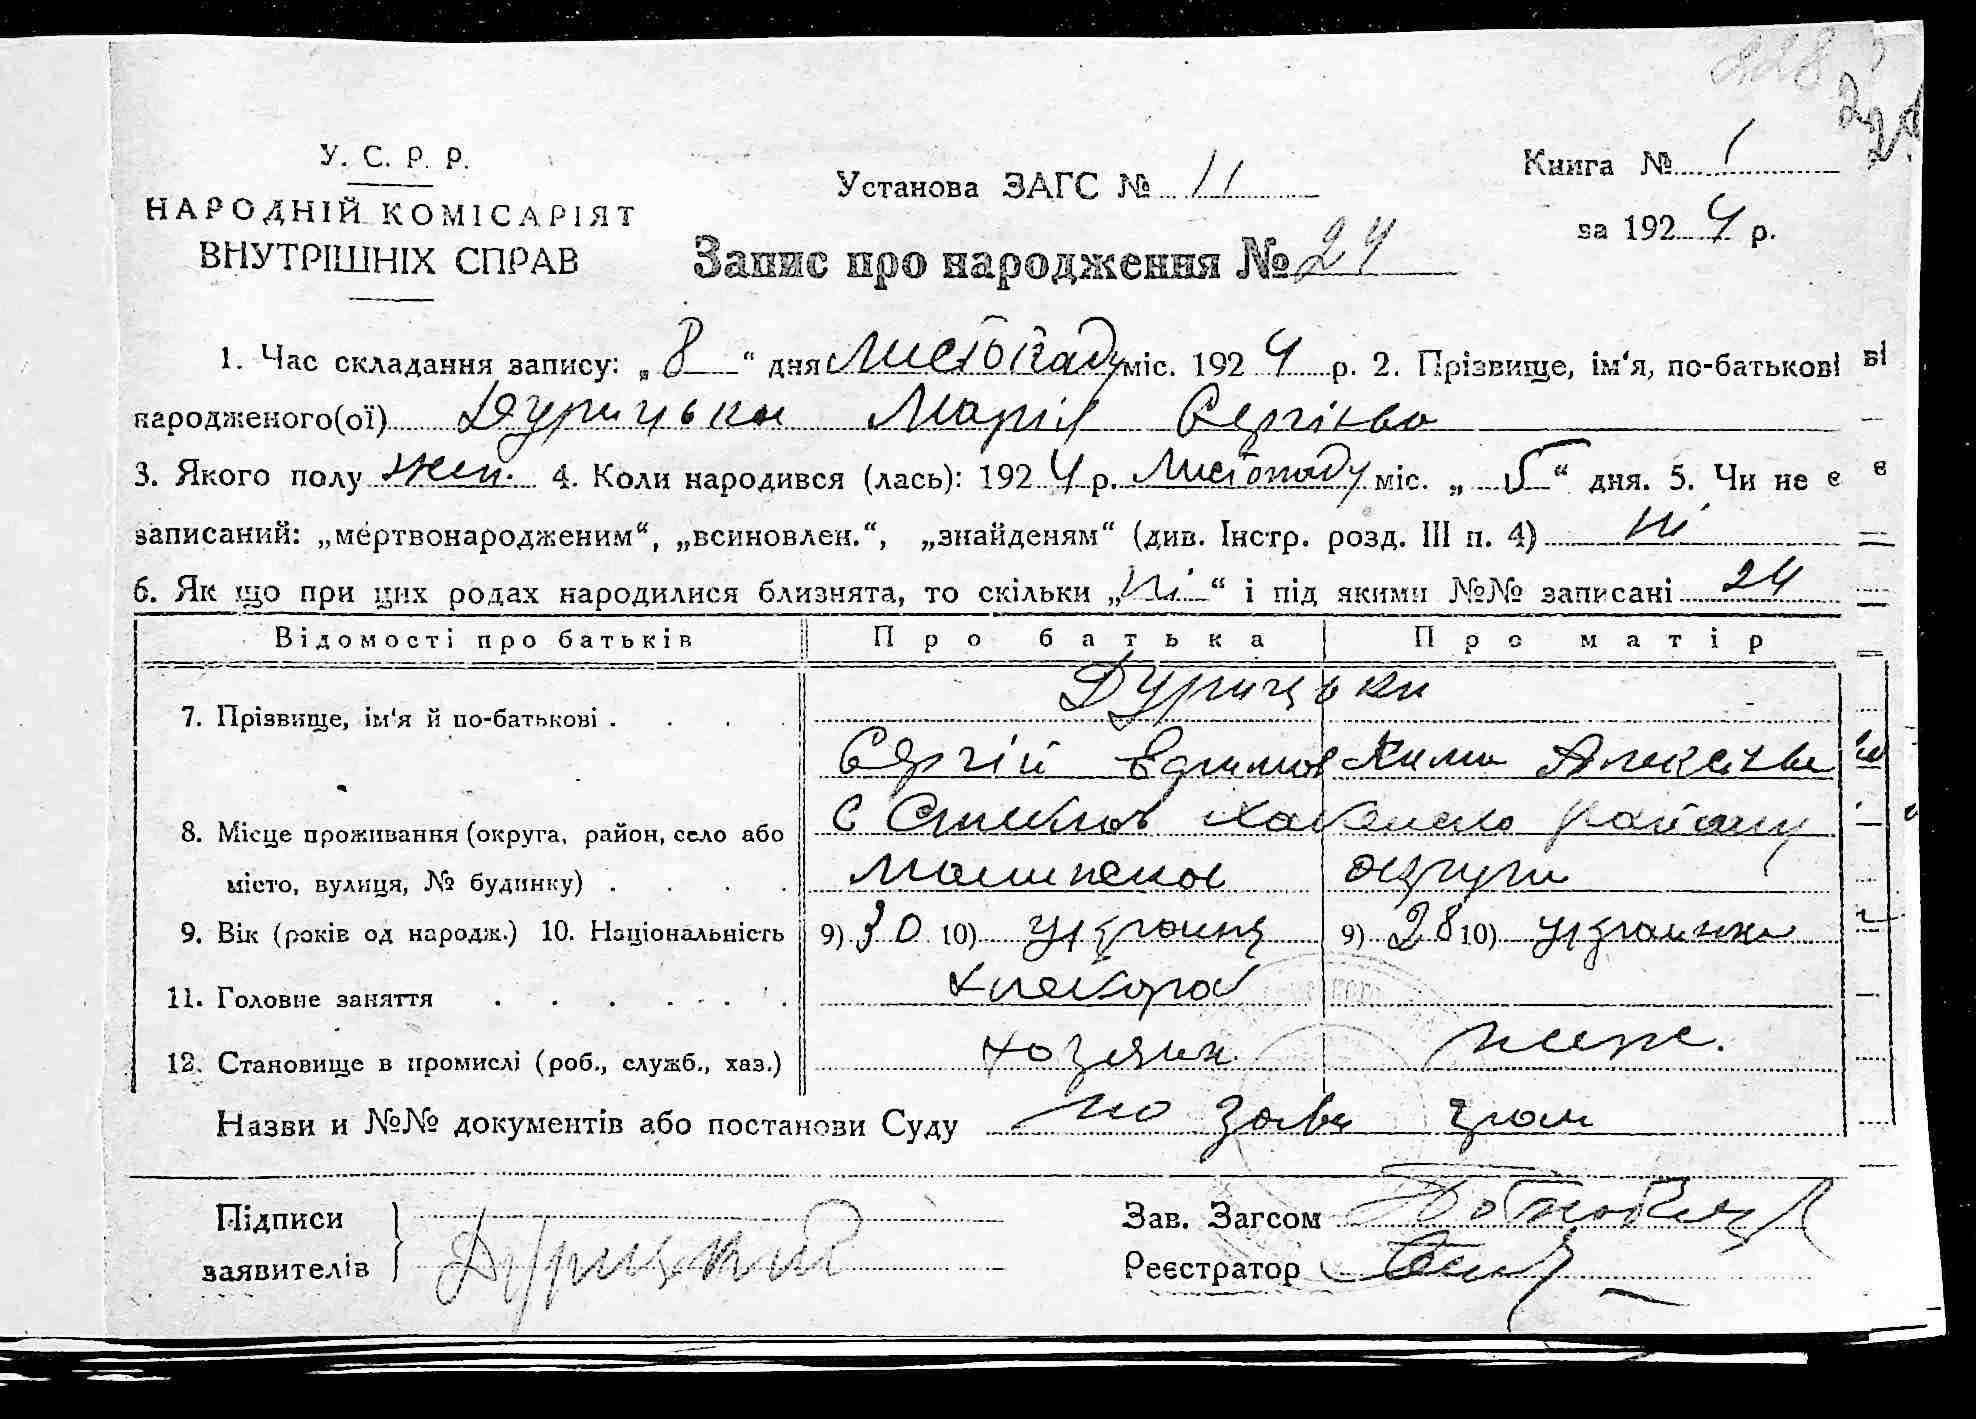 У. С. Р. Р.
НАРОДНІЙ КОМІСАРІЯТ
ВНУТРІШНІХ СПРАВ
Установа ЗАГС № 11
Книга № 1
за 1924 р.
Запис про народження № 24
1. Час складання запису: „8“ дня Листопаду міс. 1924 р. 2. Прізвище, ім‘я, по-батькові
народженого(ої) Дурицька Марія Сергієва
3. Якого полу жен. 4. Коли народився (лась): 1924 р. Листопаду міс. „5“ дня. 5. Чи не є
записаний: „мертвонародженим“, „всиновлен.“, „знайденям“ (див. Інстр. розд. III п. 4) ні
6. Як що при цих родах народилися близнята, то скільки „ні“ і під якими №№ записані 24
Відомості про батьків Про батька Про матір
7. Прізвище, ім‘я й по-батькові . . . . Дурицьки
Сергій Ефимов Алексієва
8. Місце проживання (округа, район, село або с району
місто, вулиця, № будинку) . . . . округи
9. Вік (років од народж.) 10. Національність 9) 30 10) украинц 9) 28 10) украинка
11. Головне заняття . . . . . . хлебороб
12. Становище в промислі (роб., служб., хаз.) хозяин
Назви и №№ документів або постанови Суду по заяві гром
Підписи
заявителів Дурицкий
Зав. Загсом
Реєстратор